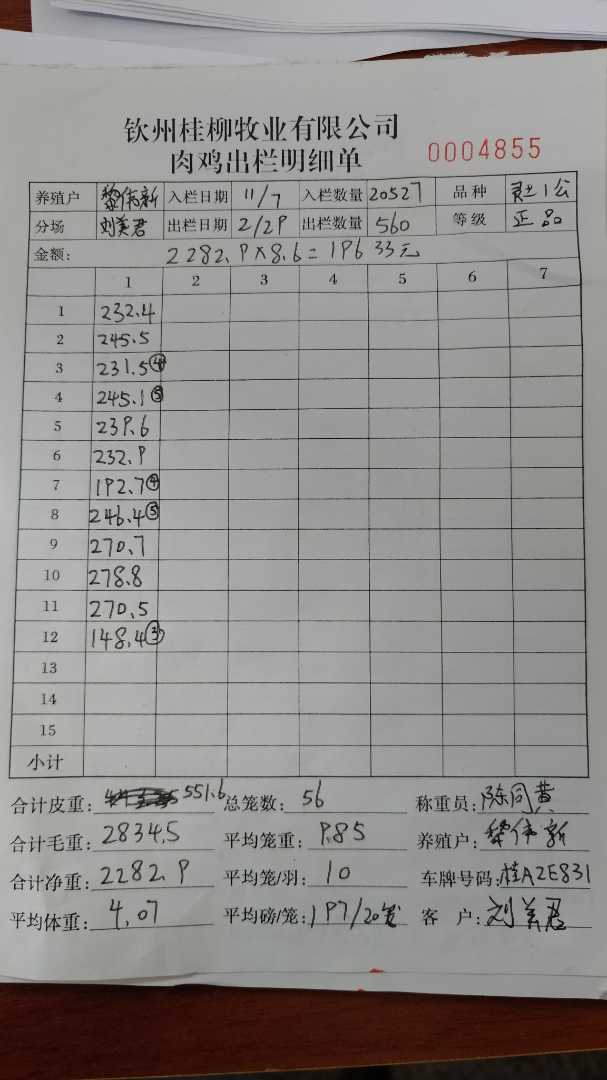 钦州桂柳牧业有限公司
肉鸡出栏明细单 0004855
养殖户 黎伟新 入栏日期 11/7 入栏数量 20527 品种 灵土1公
分场 刘美君 出栏日期 2/29 出栏数量 560 等级 正品
金额: 2282.9×8.6=19633元
1 2 3 4 5 6 7
1 232.4
2 245.5
3 231.5④
4 245.1⑤
5 239.6
6 232.9
7 192.7④
8 246.4⑤
9 270.7
10 278.8
11 270.5
12 148.4③
13
14
15
小计
合计皮重: 551.6 总笼数: 56 称重员: 陈同黄
合计毛重: 2834.5 平均笼重: 9.85 养殖户: 黎伟新
合计净重: 2282.9 平均笼/羽: 10 车牌号码: 桂A2E831
平均体重: 4.07 平均磅/笼: 197/20笼 客户: 刘美君